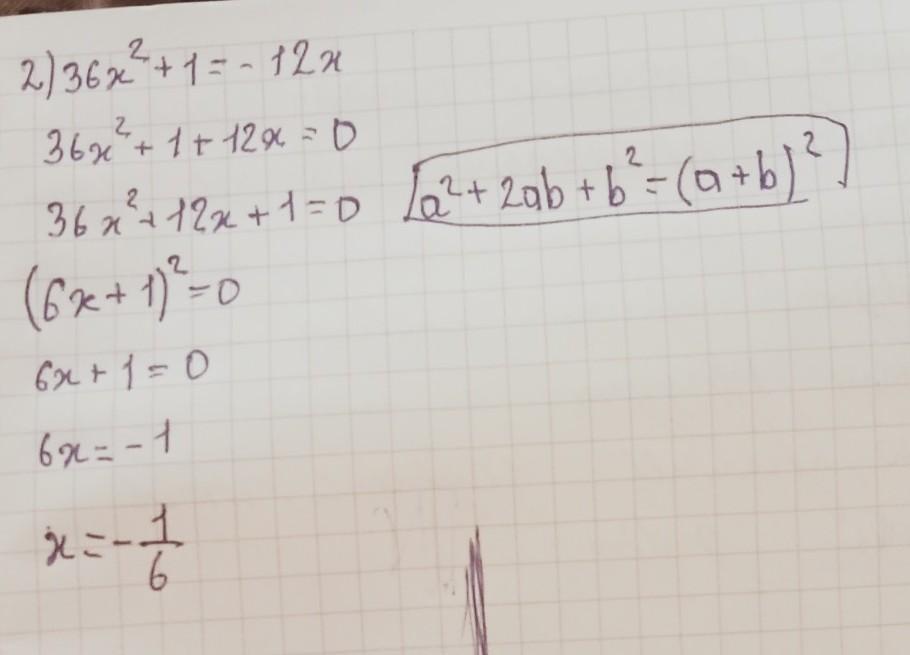 2) 36x² + 1 = - 12x
36x² + 1 + 12x = 0
36x² + 12x + 1 = 0 [a² + 2ab + b² = (a + b)²]
(6x + 1)² = 0
6x + 1 = 0
6x = - 1
x = - 1/6